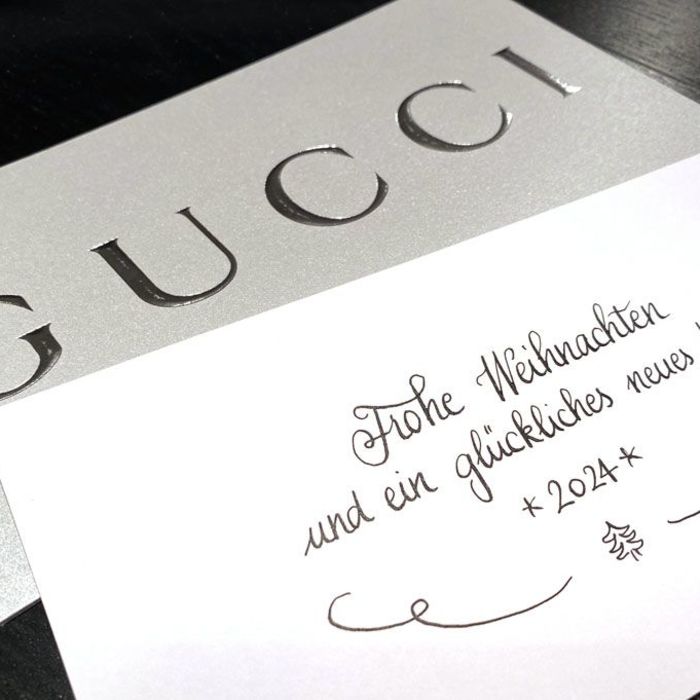 GUCCI
Frohe Weihnachten
und ein glückliches neues
*2024*